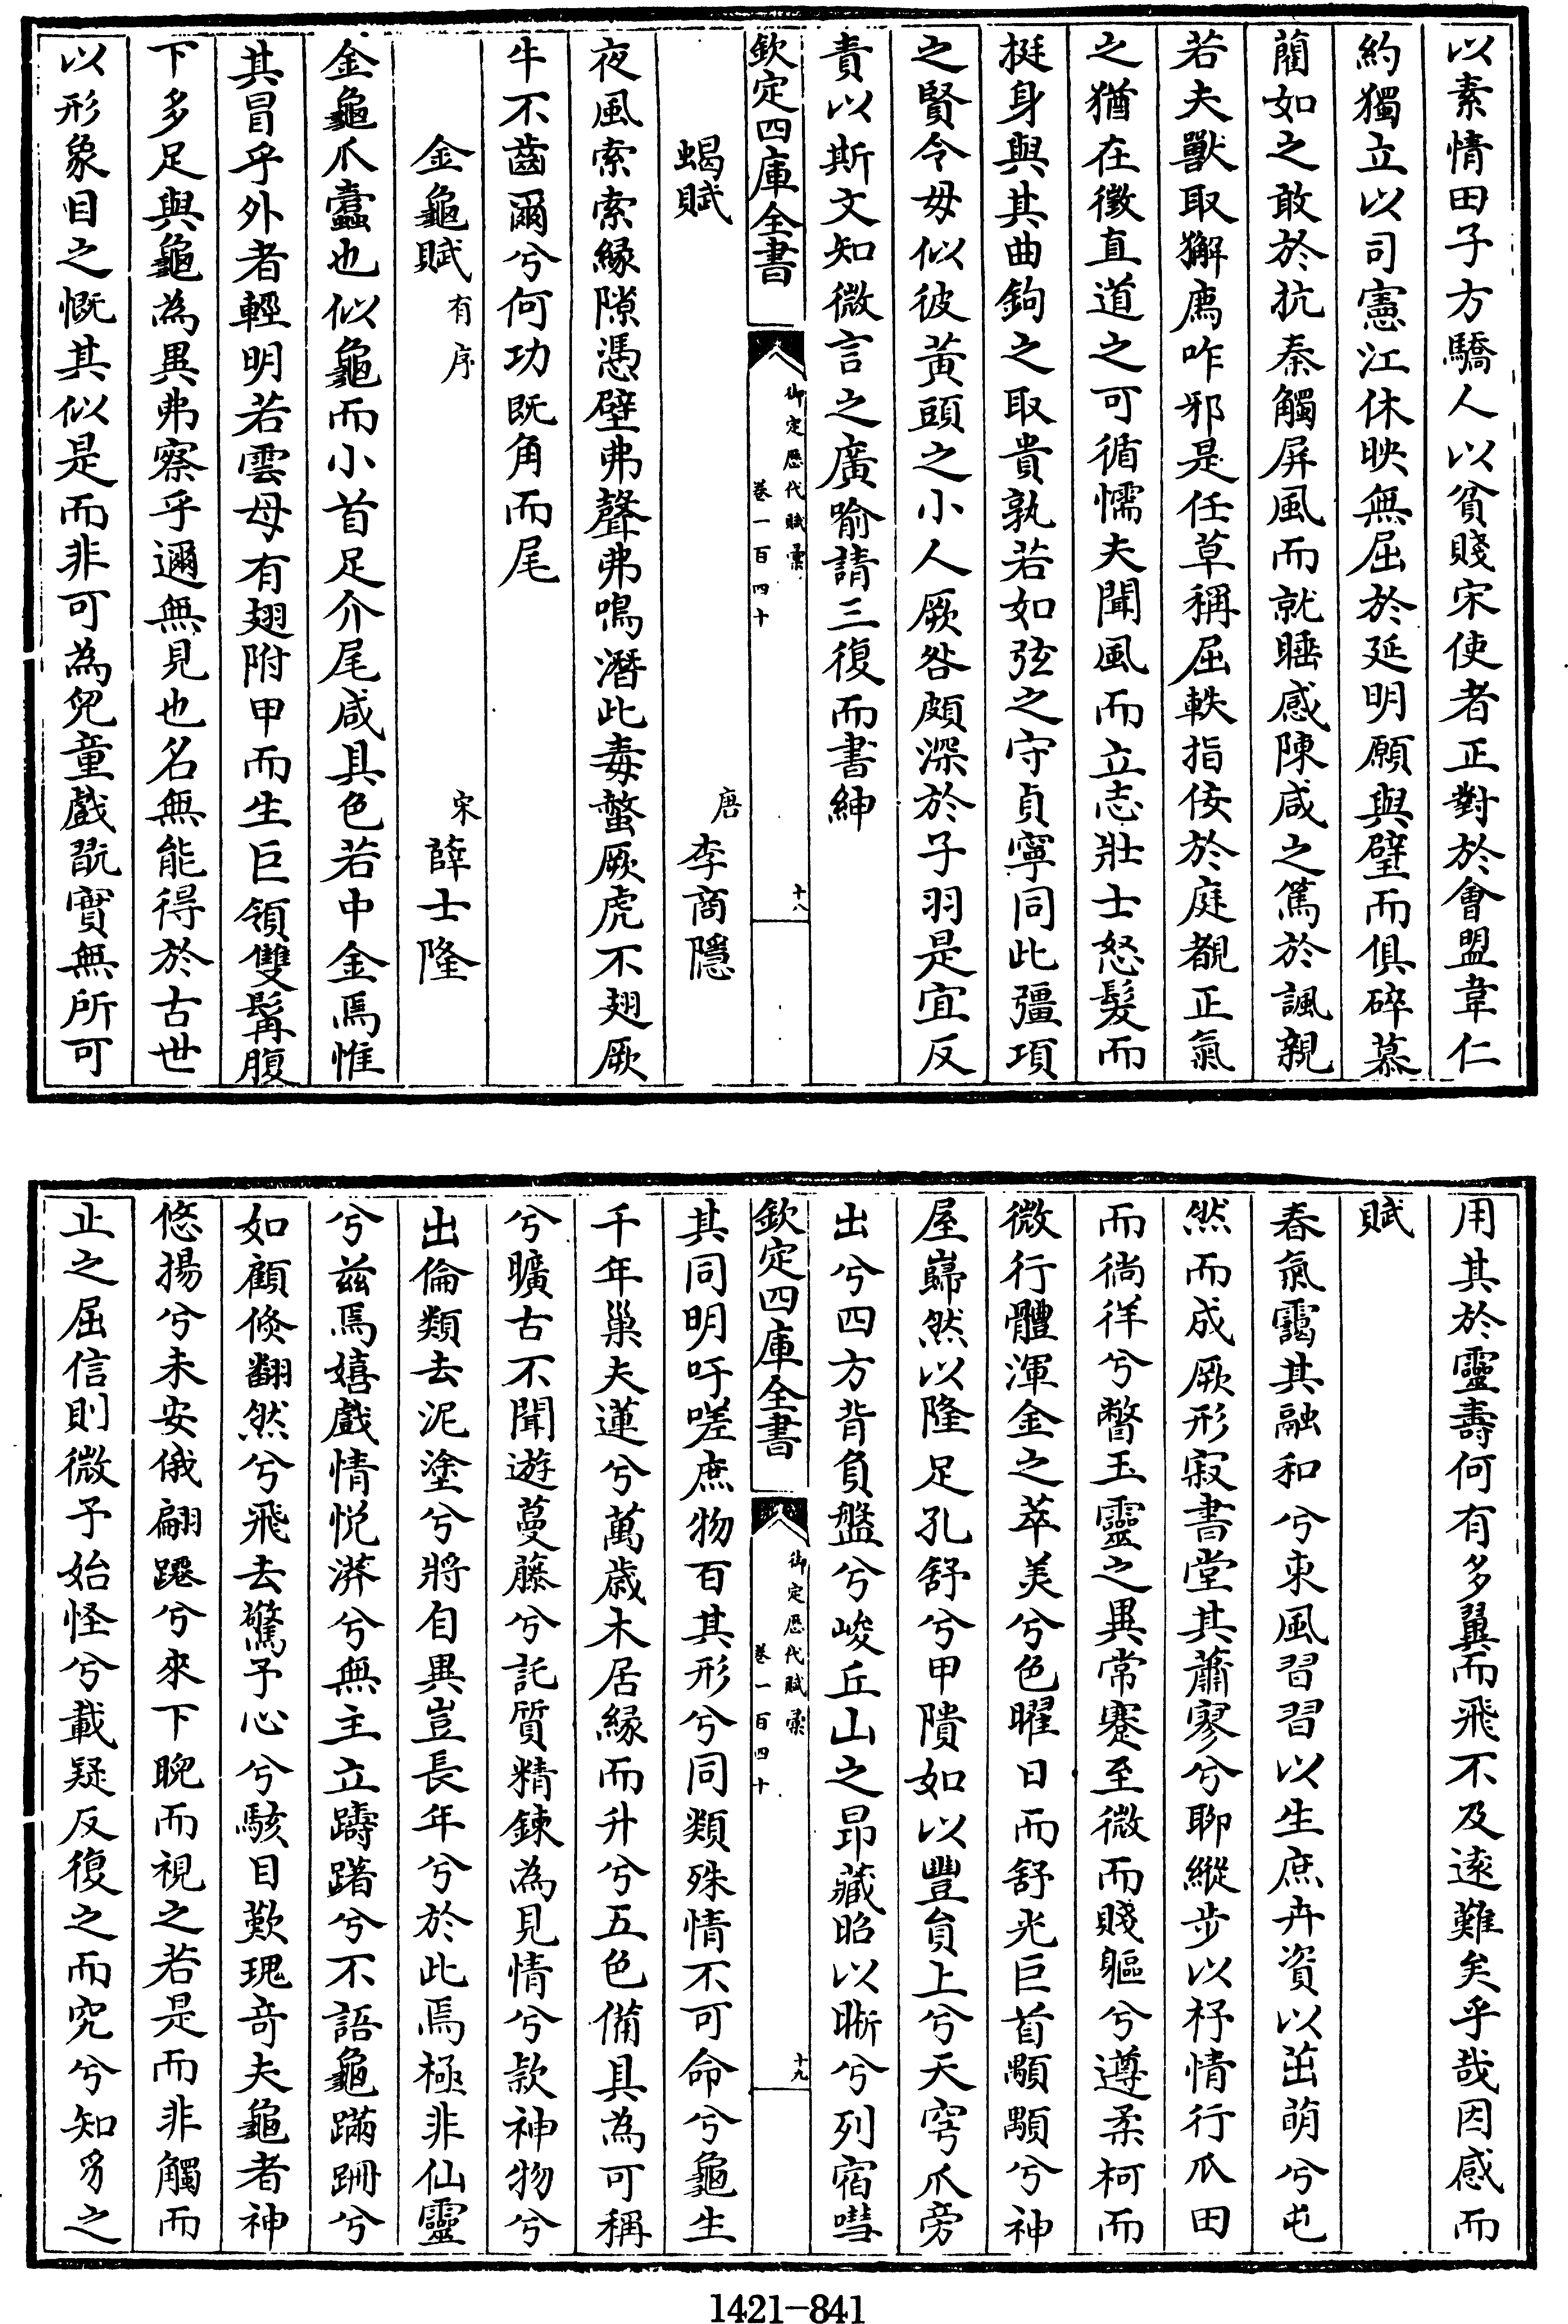 以素情田子方驕人以貧賤宋使者正對於會盟韋仁
約獨立以司憲江休映無屈於延明願與璧而俱碎慕
藺如之敢於抗秦觸屏風而就睡感陳咸之篤於諷親
若夫獸取獬廌咋邪是任草稱屈軼指佞於庭覩正氣
之猶在徵直道之可循懦夫聞風而立志壯士怒髮而
挺身與其曲鉤之取貴孰若如弦之守貞寧同此彊項
之賢令毋似彼黃頭之小人厥咎頗深於子羽是宜反
責以斯文知微言之廣喻請三復而書紳
欽定四庫全書
御定歷代賦彙
卷一百四十
十八
蝎賦
唐李商隱
夜風索索緣隙憑壁弗聲弗鳴潛此毒螫厥虎不翅厥
牛不齒爾兮何功既角而尾
金龜賦有序
宋薛士隆
金龜爪蠧也似龜而小首足介尾咸具色若中金焉惟
其冒乎外者輕明若雲母有翅附甲而生巨領雙髯腹
下多足與龜為異弗察乎邇無見也名無能得於古世
以形象目之慨其似是而非可為兒童戲翫實無所可
用其於靈壽何有多翼而飛不及遠難矣乎哉因感而
賦
春氣靄其融和兮東風習習以生庶卉資以茁萌兮屯
然而成厥形寂書堂其蕭寥兮聊縱步以抒情行爪田
而徜徉兮瞥玉靈之異常蹇至微而賤軀兮遵柔柯而
微行體渾金之萃美兮色曜日而舒光巨首顒顒兮神
屋巋然以隆足孔舒兮甲隤如以豐負上兮天穹爪旁
出兮四方背負盤兮峻丘山之昂藏昭以晰兮列宿嘒
欽定四庫全書
御定歷代賦彙
卷一百四十
十九
其同明吁嗟庶物百其形兮同類殊情不可命兮龜生
千年巢夫蓮兮萬歲木居緣而升兮五色備具為可稱
兮曠古不聞遊蔓藤兮託質精鍊為見情兮款神物兮
出倫類去泥塗兮將自異豈長年兮於此焉極非仙靈
兮茲焉嬉戲情悅漭兮無主立躊躇兮不語龜蹣跚兮
如顧倏翻然兮飛去驚予心兮駭目歎瑰奇夫龜者神
悠揚兮未安俄翩躚兮來下睨而視之若是而非觸而
止之屈信則微予始怪兮載疑反復之而究兮知豸之
1421-841